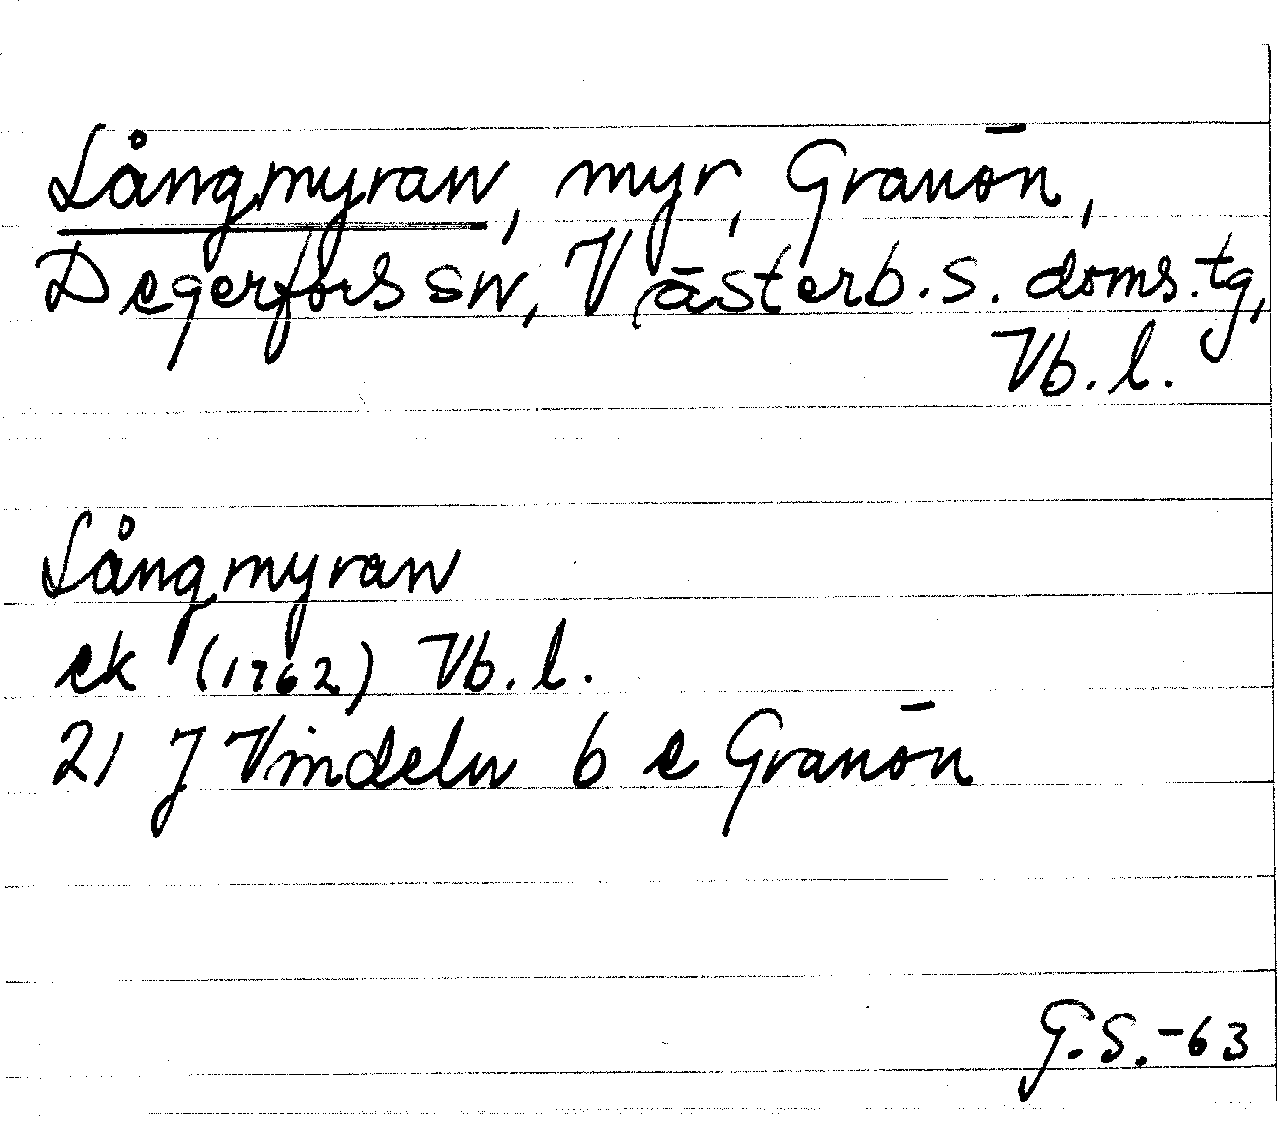 Långmyran, myr, Granön,
Degerfors sn, Västerb. s. doms. tg,
Vb. l.
Långmyran
ek (1962) Vb. l.
21 J Vindeln 6 e Granön
G. S. -63